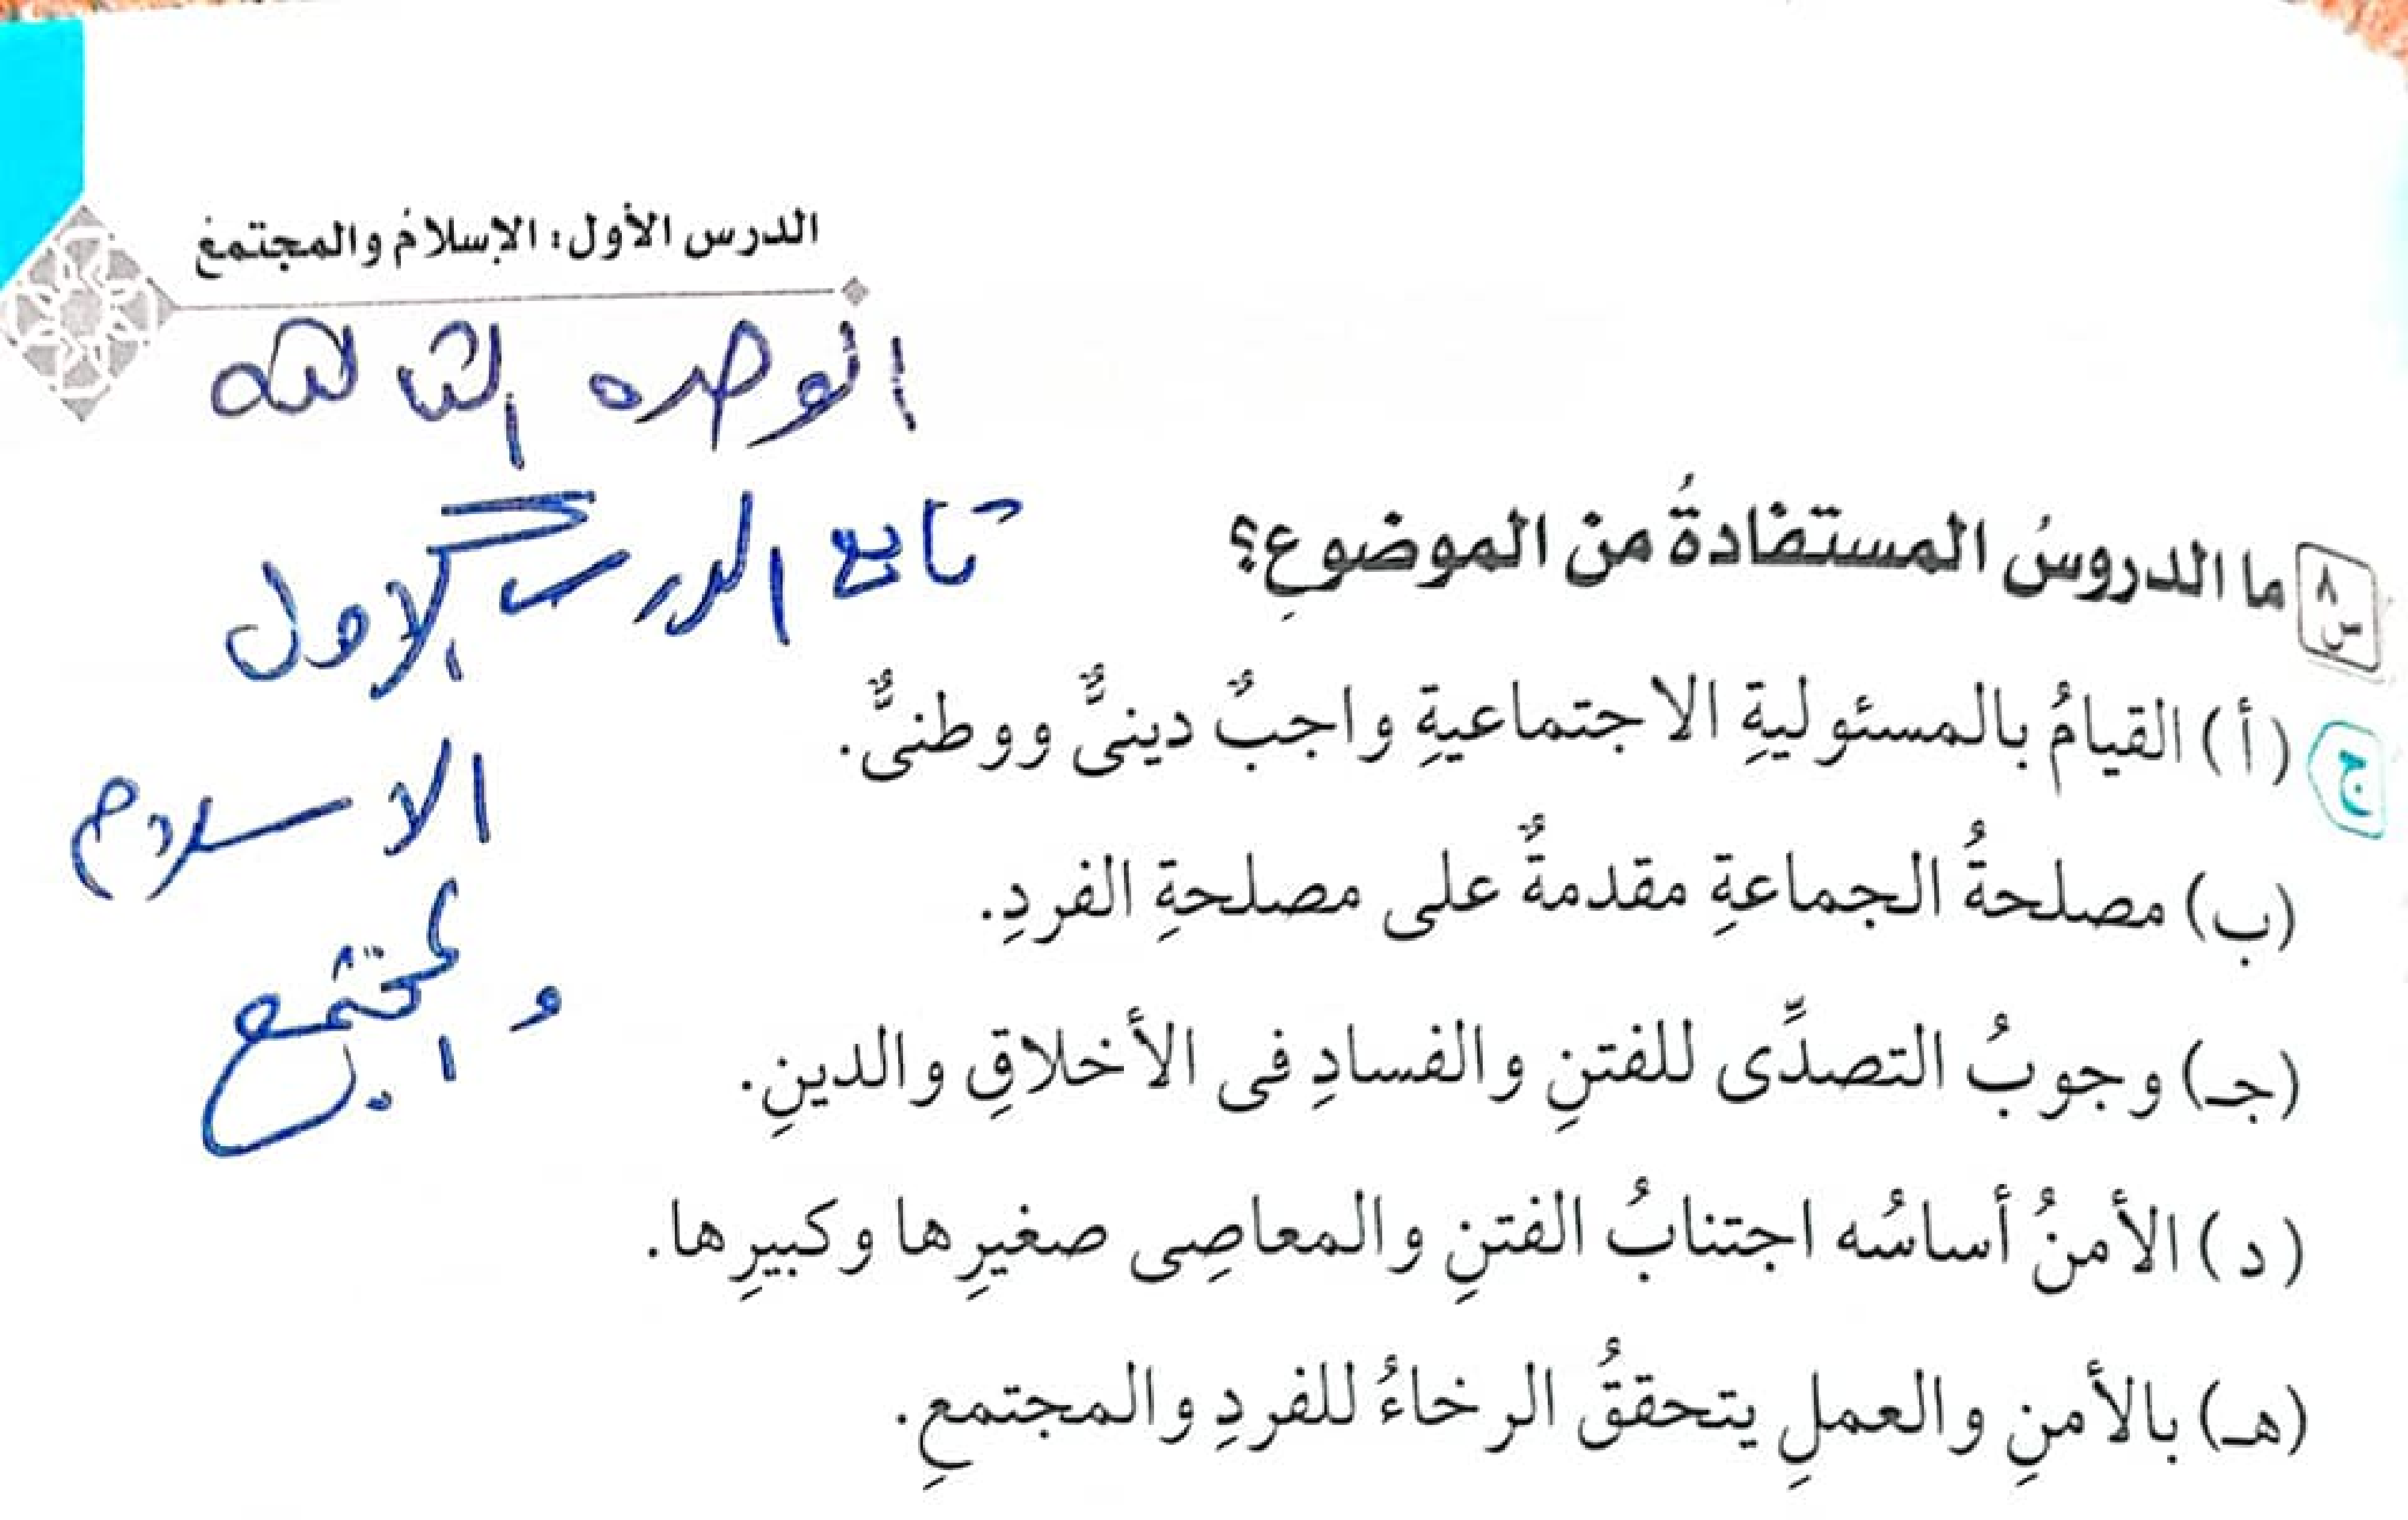 الدرس الأول: الإسلامُ والمجتمعُ
الوحده الثالثه
تابع الدرس الاول
الاسلام
والمجتمع
س ٨ ما الدروسُ المستفادةُ من الموضوعِ؟
ج (أ) القيامُ بالمسئوليةِ الاجتماعيةِ واجبٌ دينىٌّ ووطنىٌّ.
(ب) مصلحةُ الجماعةِ مقدمةٌ على مصلحةِ الفردِ.
(جـ) وجوبُ التصدِّى للفتنِ والفسادِ فى الأخلاقِ والدينِ.
(د) الأمنُ أساسُه اجتنابُ الفتنِ والمعاصِى صغيرِها وكبيرِها.
(هـ) بالأمنِ والعملِ يتحققُ الرخاءُ للفردِ والمجتمعِ.